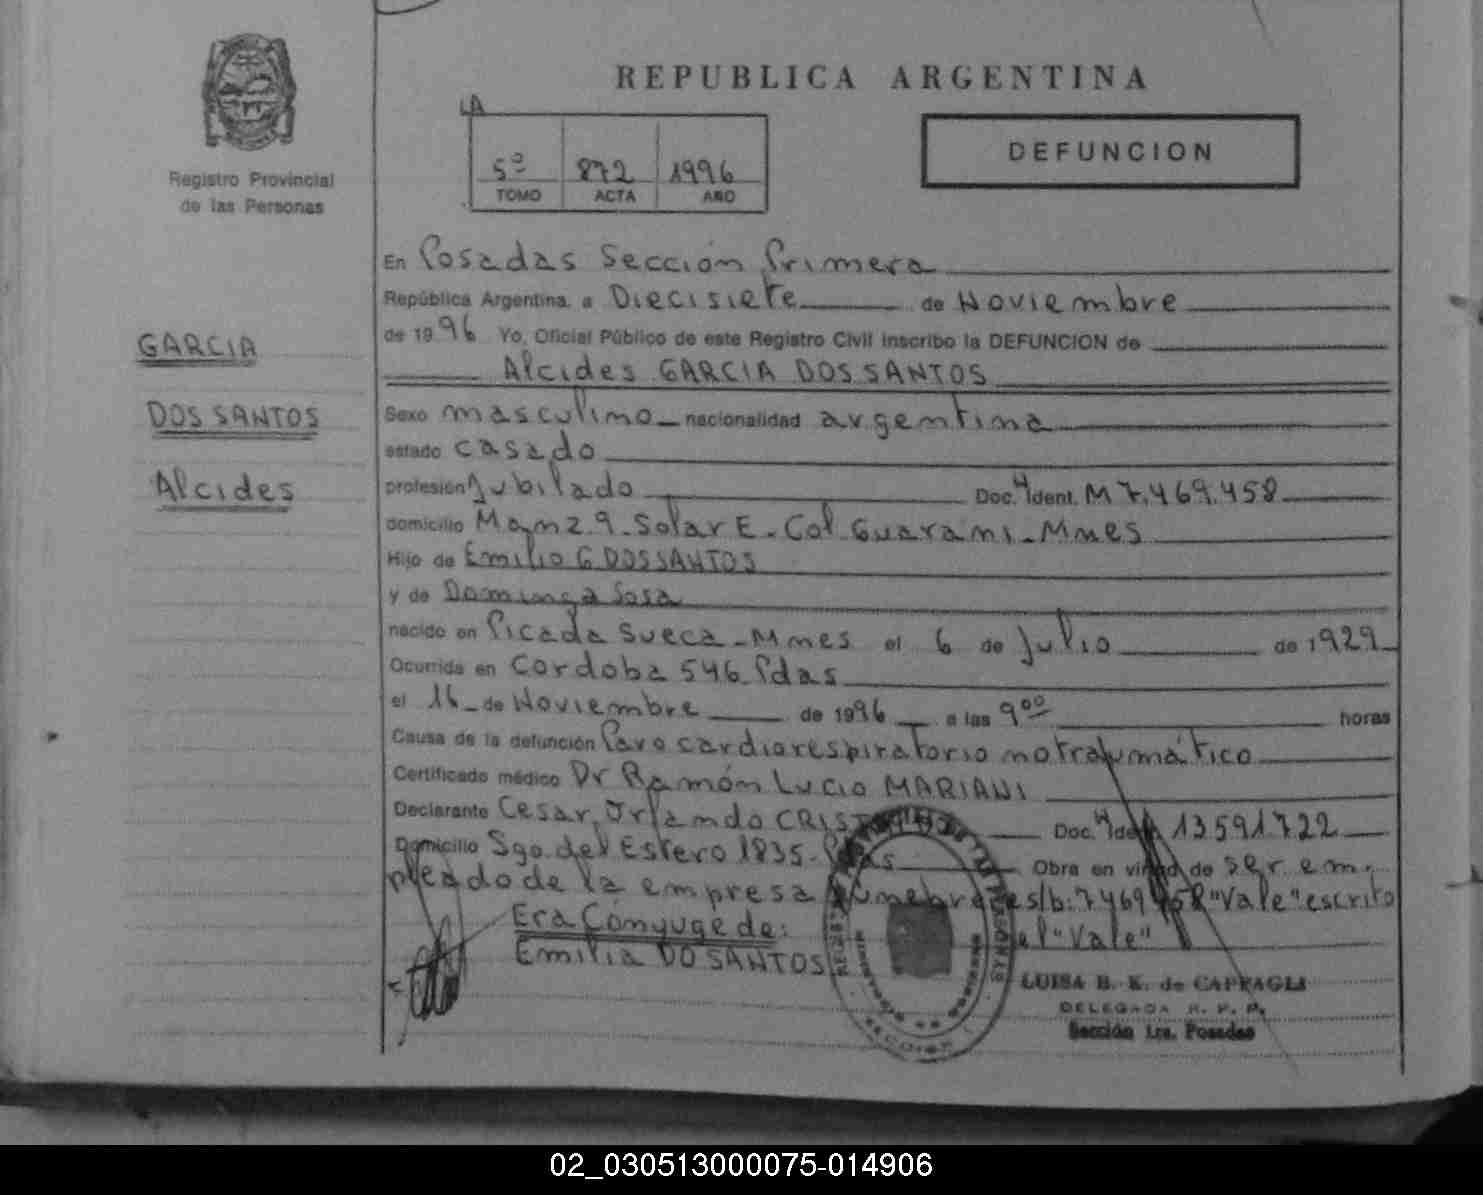 REPUBLICA ARGENTINA
LA
5º 872 1996
TOMO ACTA AÑO
DEFUNCION
Registro Provincial
de las Personas
GARCIA
DOS SANTOS
Alcides
En Posadas Sección Primera
República Argentina, a Diecisiete de Noviembre
de 1996 Yo, Oficial Público de este Registro Civil inscribo la DEFUNCION de
Alcides GARCIA DOS SANTOS
Sexo masculino nacionalidad argentina
estado casado
profesión Jubilado Doc. Ident. M 7.469.458
domicilio Manz. 9 - Solar E - Col. Guaraní - Mnes
Hijo de Emilio G DOS SANTOS
y de Dominga Sosa
nacido en Picada Sueca - Mnes el 6 de Julio de 1929
Ocurrida en Cordoba 546 Pdas
el 16 de Noviembre de 1996 a las 9⁰⁰ horas
Causa de la defunción Paro cardiorespiratorio no traumático
Certificado médico Dr Ramón Lucio MARIANI
Declarante Cesar Orlando Doc. Ident. 13591722
Domicilio Sgo. del Estero 1835 - Pdas Obra en virtud de ser em-
pleado de la empresa funebre es/b: 7469458 "Vale" escrito
el "Vale"
Era Cónyuge de:
Emilia DO SANTOS
LUISA B. K. de CAPPAGLI
DELEGADA R. P. P.
Sección 1ra. Posadas
SECCION
02_030513000075-014906